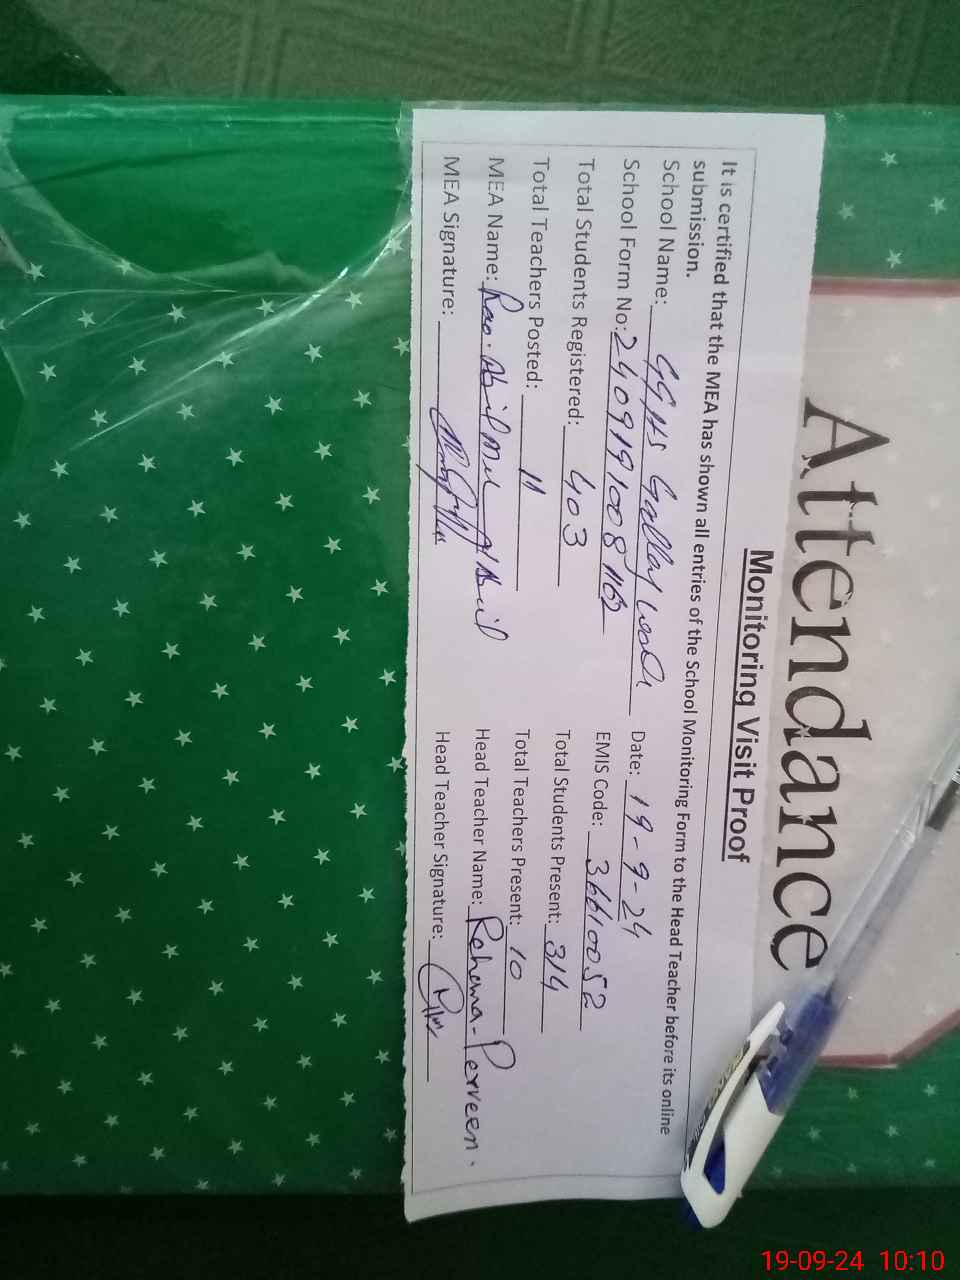 Attendance
Monitoring Visit Proof
It is certified that the MEA has shown all entries of the School Monitoring Form to the Head Teacher before its online
submission.
School Name: GGHS Date: 19-9-24
School Form No: EMIS Code: 36610052
Total Students Registered: 403 Total Students Present: 314
Total Teachers Posted: 11 Total Teachers Present: 10
MEA Name: Rao. Head Teacher Name: Rehana Perveen.
MEA Signature: Head Teacher Signature:
19-09-24 10:10